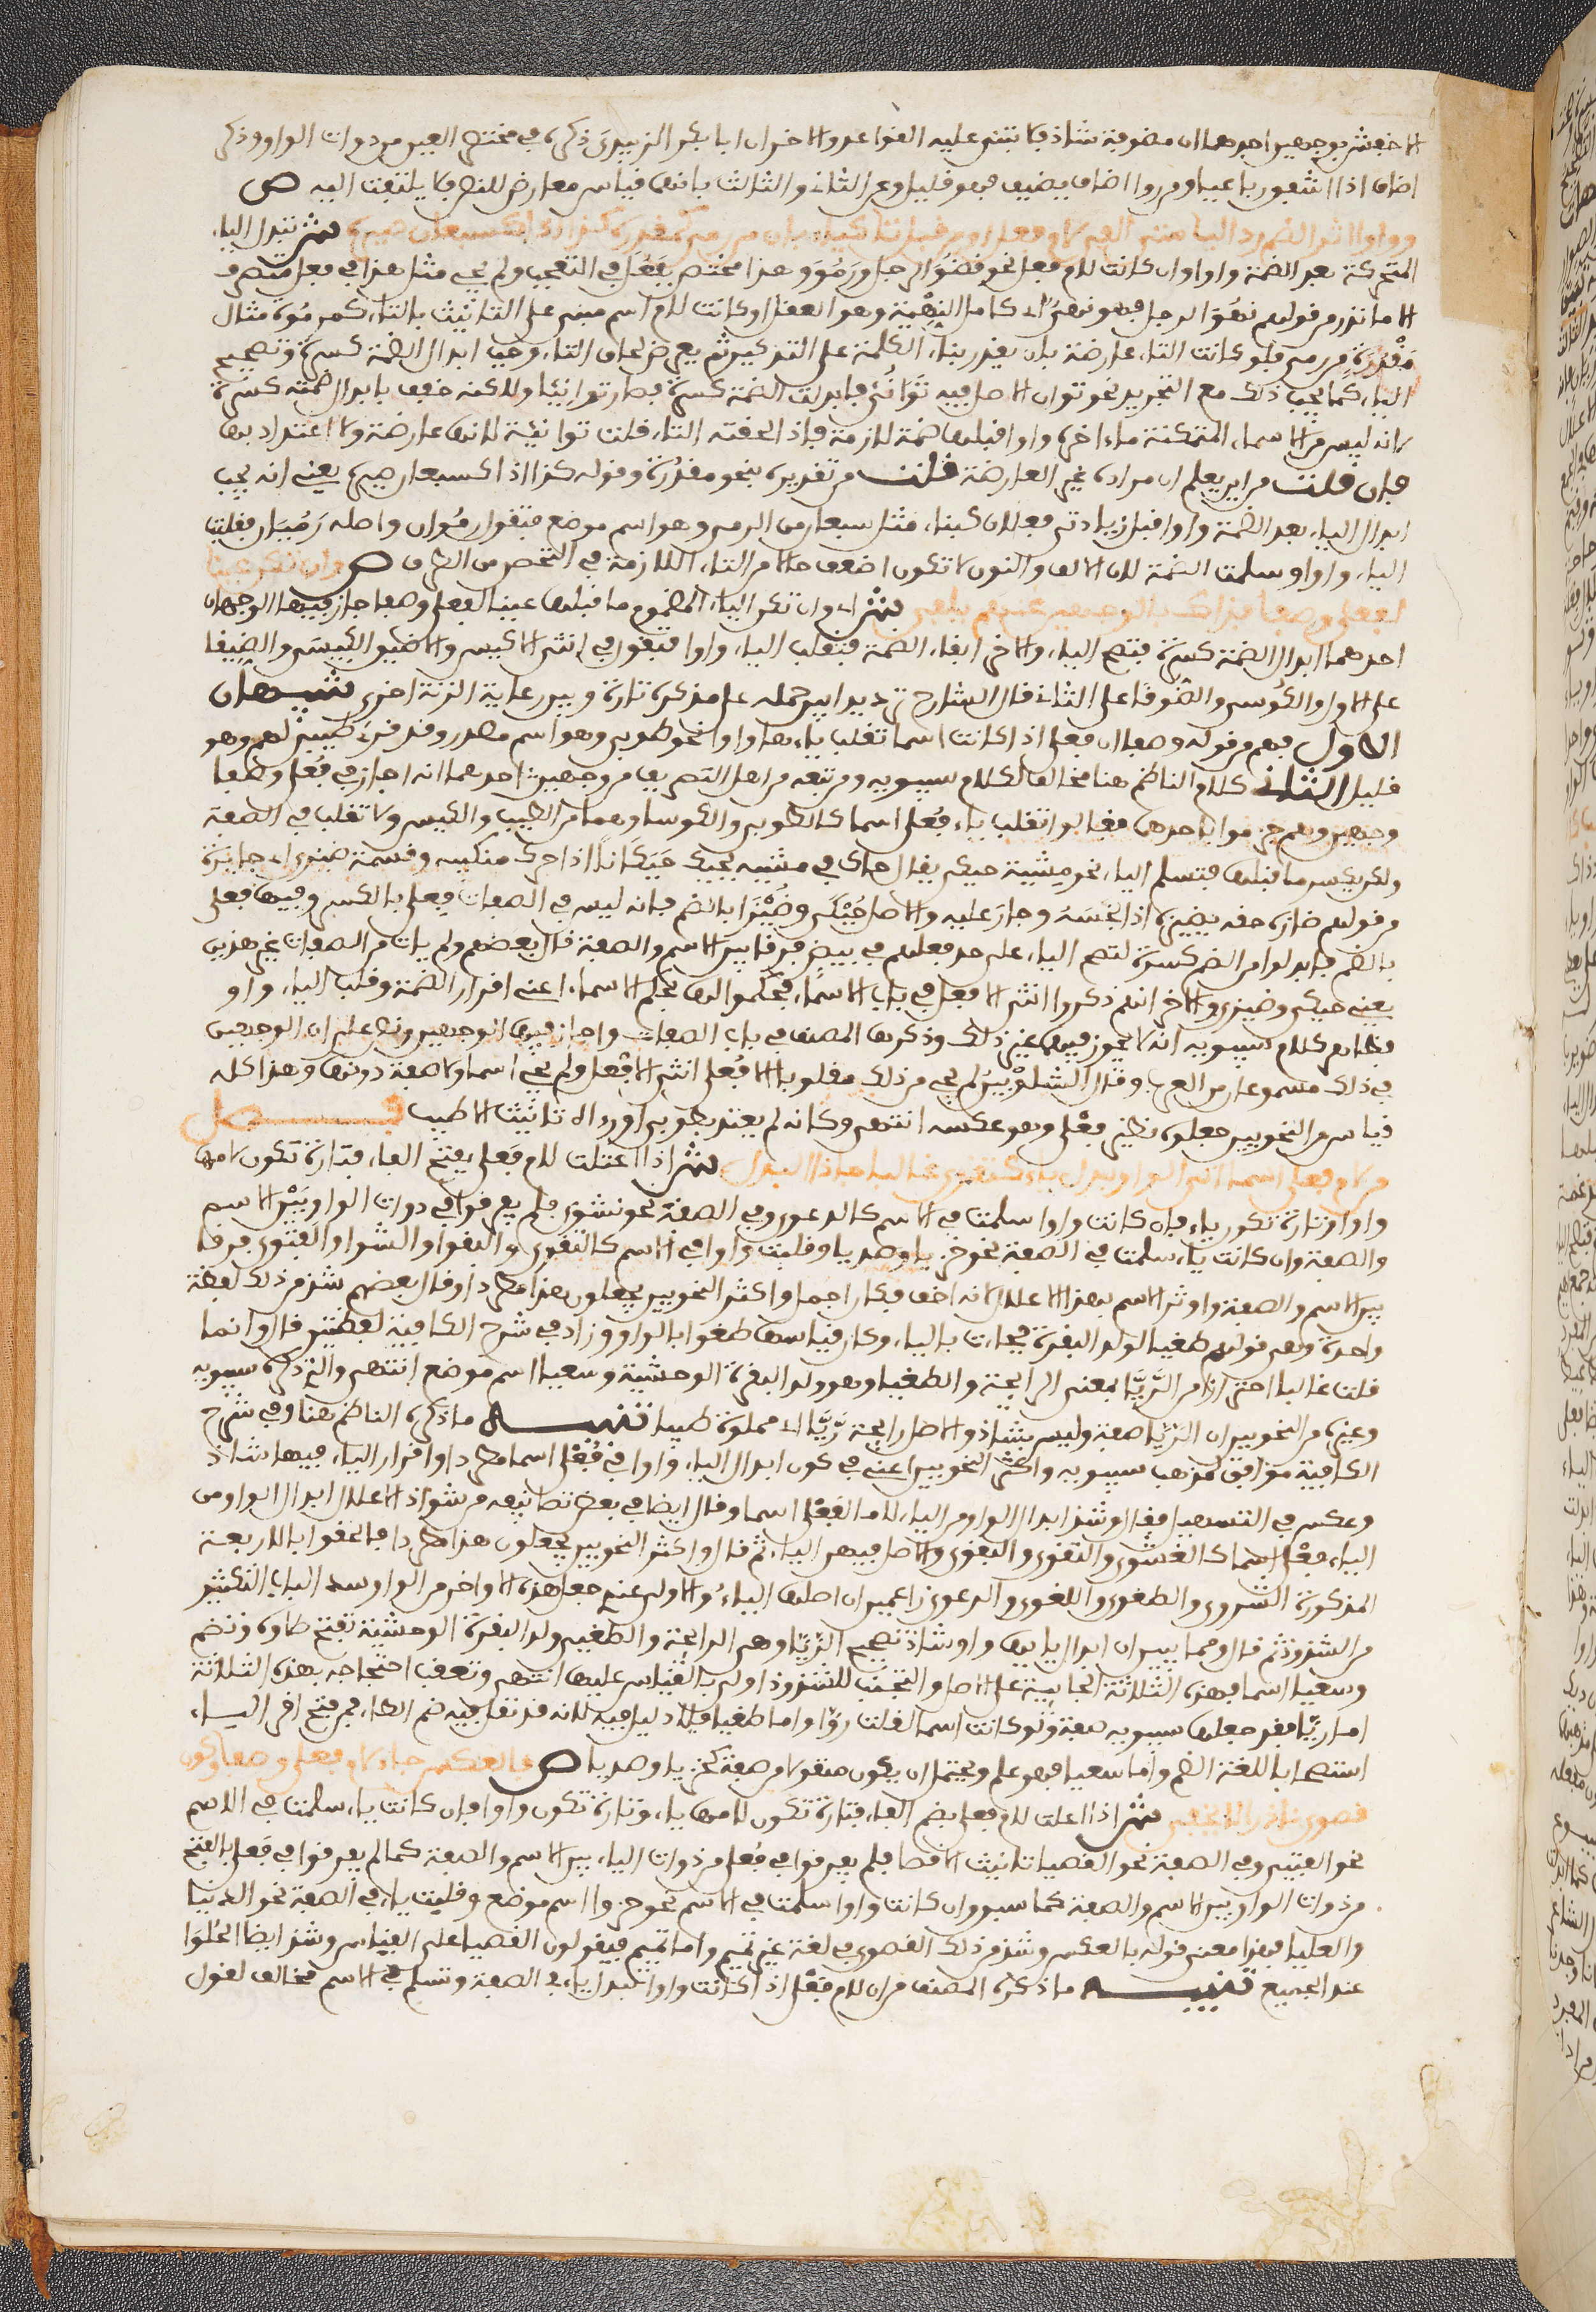 الاخفش بوجهين احدهما ان مضوفة شاذ فلا تبنى عليه القواعد والاخر ان ابا بكر الزبيدي ذكره في مختصر العين من ذوات الواو وذكر
اضاف اذا اشفق رباعيا ومن روا اضاف يضيف فهو قليل وعن الثاني والثالث بانهما قياس معارض للنص فلا يلتفت اليه ص
وواوا اثر الضم رد اليا متى الفي لام فعل او من قبل تا كتاء بان من رمى كمقدره كذا اذا كسبعان صيره ش تبدل الياء
المتحركة بعد الضمة واوا ان كانت لام فعل نحو قضُوَ الرجل ورمُوَ وهذا مختص بفَعُلَ في التعجب ولم يجئ مثل هذا في فعل متصرف
الا ما ندر من قولهم نهُوَ الرجل فهو نهيّ اذا كان كامل النهية وهو العقل او كانت لام اسم مبني على التانيث بالتاء كمرموة مثال
مَقْدُرَة من رمى فلو كانت التاء عارضة بان يقدر بناء الكلمة على التذكير ثم يعرض لحاق التاء وجب ابدال الضمة كسرة وتصحيح
الياء كما يجب ذلك مع التجريد نحو توان الاصل فيه تَوَانُيٌ فابدلت الضمة كسرة فصار توانيا وللكنه خفف بابدال ضمته كسرة
لانه ليس من الاسماء المتمكنة ما اخره واو قبلها ضمة لازمة فاذا لحقته التاء قلت توانية لانها عارضة ولا اعتداد بها
فان قلت من اين يعلم ان مراده غير العارضة قلت من تقديره بنحو مقدُرة وقوله كذا اذا كسبعان صيره يعني انه يجب
ابدال الياء بعد الضمة واوا قبل زيادتي فعلان كبناء مثل سبعان من الرمي وهو اسم موضع فتقول رموان واصله رَمُيَان فقلبت
الياء واوا وسلمت الضمة لان الالف والنون لا تكون اضعف حالا من التاء اللازمة في التحصن من الطرف ص وان تكن عينا
لفعلى وصفا فذاك بالوجهين عنهم يلفى ش اي وان تكن الياء المضموم ما قبلها عينا لفعلى وصفا جاز فيها الوجهان
احدهما ابدال الضمة كسرة فتصح الياء والاخر ابقاء الضمة فتقلب الياء واوا فتقول في انثى الاكيس والاضيق الكيسى والضيقا
على الاول والكُوسى والضُوقا على الثاني قال الشارح ترديدا بين حمله على مذكره تارة وبين رعاية الزنة اخرى تنبيهان
الاول فهم من قوله وصفا ان فعلى اذا كانت اسما تقلب ياؤها واوا نحو طوبى وهو اسم مصدر وقد قرئ طيبى لهم وهو
قليل الثاني كلام الناظم هنا مخالف لكلام سيبويه ومن تبعه من اهل التصريف من وجهين احدهما انه اجاز في فُعلى وصفا
وجهين وهم جزموا باحدهما فقالوا تقلب ياء فُعلى اسما كالطوبى والكوسا وهما من الطيب والكيس ولا تقلب في الصفة
ولكن يكسر ما قبلها فتسلم الياء نحو مشية حيكى يقال حاك في مشيه يحيك حَيَكَانًا اذا حرك منكبيه وقسمة ضيزى اي جايرة
من قولهم ضازه حقه يضيزه اذا بخسهُ وجار عليه والاصل حُيْكَى وضُيْزَا بالضم فانه ليس في الصفات فِعلى بالكسر وفيها فعلى
بالضم فابدلوا من الضم كسرة لتصح الياء على حد فعلهم في بيض فرقا بين الاسم والصفة قال بعضهم ولم يات من الصفات غير هذين
يعني حيكى وضيزى والاخر انهم ذكروا انثى الافعل في باب الاسماء فحكموا لها بحكم الاسماء اعني اقرار الضمة وقلب الياء واوا
فظاهر كلام سيبويه انه لا يجوز فيها غير ذلك وذكرها المصنف في باب الصفات واجاز فيها الوجهين ونص على ان الوجهين
في ذلك مسموعان من العرب وقال الشلوْبين لم يجئ من ذلك مقلوبا الا فُعلى انثى الافعل ولم يجئ اسما ولا صفة دونها وهذا كله
قياس من النحويين جعلوه نظير فعْلى وهو عكسه انتهى وكانه لم يعتد بطوبى او راه تانيث الاطيب فصل
من لام فعلى اسما اتى الواو بدل ياء كتقوى غالبا جا ذا البدل ش اذا اعتلت لام فَعلى بفتح الفاء فتارة تكون لامها
واوا وتارة تكون ياء فان كانت واوا سلمت في الاسم كالدعوى وفي الصفة نحو نشوى فلم يفرقوا في ذوات الواو بيْن الاسم
والصفة وان كانت ياء سلمت في الصفة نحو خزيا وصديا وقلبت واوا في الاسم كالتقوى والبقوا والشروا والفتوى فرقا
بين الاسم والصفة واوثر الاسم بهذا الاعلال لانه اخف فكان احمل واكثر النحويين يجعلون هذا مطردا وقال بعضهم شذ من ذلك لفظة
واحدة وهي قولهم طغيا لولد البقرة فجاءت بالياء وكان قياسها طغوا بالواو وزاد في شرح الكافية لفظتين قال وانما
قلت غالبا احترازا من الرَّيّا بمعنى الرايحة والطغيا وهو ولد البقرة الوحشية وسعيا اسم موضع انتهى والذي ذكره سيبويه
وغيره من النحويين ان الرّيّا صفة وليس بشاذ والاصل رايحة رَيّا اي مملوة طيبا تنبيه ما ذكره الناظم هنا وفي شرح
الكافية موافق لمذهب سيبويه واكثر النحويين اعني في كون ابدال الياء واوا في فَعْلى اسما مطردا واقرار الياء فيها شاذ
وعكس في التسهيل فقال وشذ ابدال الواو من الياء لاما لفَعْلى اسما وقال ايضا في بعض تصانيفه من شواذ الاعلال ابدال الواو من
الياء في فعْلى اسما كالنشوى والتقوى والفتوى والاصل فيهن الياء ثم قال واكثر النحويين يجعلون هذا مطردا فالحقوا بالاربعة
المذكورة الشروى والطغوى واللغوى والدعوى زاعمين ان اصلها الياءُ والاولى عندي جعل هذه الاواخر من الواو سدا لباب التكثير
من الشذوذ ثم قال ومما يبين ان ابدال يايها واوا شاذ تصحيح الرّيّا وهي الرايحة والطغيى ولد البقرة الوحشية تفتح طاوه وتضم
وسعيا اسما فهذه الثلاثة الجايية على الاصل والتجنب للشذوذ اولى بالقياس عليها انتهى وتعقب احتجاجه بهذه الثلاثة
اما ريّا فقد جعلها سيبويه صفة ولو كانت اسما لقلت روّا واما طغيا فلا دليل فيه لانه قد نقل فيه ضم الطاء فمن فتح اقر الياء
استصحابا للغة الضم واما سعيا فهو علم ويحتمل ان يكون منقولا من صفة كخزيا وصديا ص بالعكس جاء لام فعلى وصفا وكون
قصوى نادرا لا يخفى ش اذا اعلت لام فعلى بضم الفاء فتارة تكون لامها ياء وتارة تكون واوا فان كانت ياء سلمت في الاسم
نحو الفتيى وفي الصفة نحو القصيا تانيث الاقصا فلم يفرقوا في فُعلى من ذوات الياء بين الاسم والصفة كما لم يفرقوا في فَعلى بالفتح
من ذوات الواو بين الاسم والصفة كما سبق وان كانت واوا سلمت في الاسم نحو حزوا اسم موضع وقلبت ياء في الصفة نحو الدنيا
والعليا فهذا معنى قوله بالعكس وشذ من ذلك القصوى في لغة غير تميم واما تميم فيقولون القصيا على القياس وشذ ايضا الحُلْوَا
عند الجميع تنبيه ما ذكره المصنف من ان لام فعْلى اذا كانت واوا تبدل ياء في الصفة وتسلم في الاسم مخالف لقول